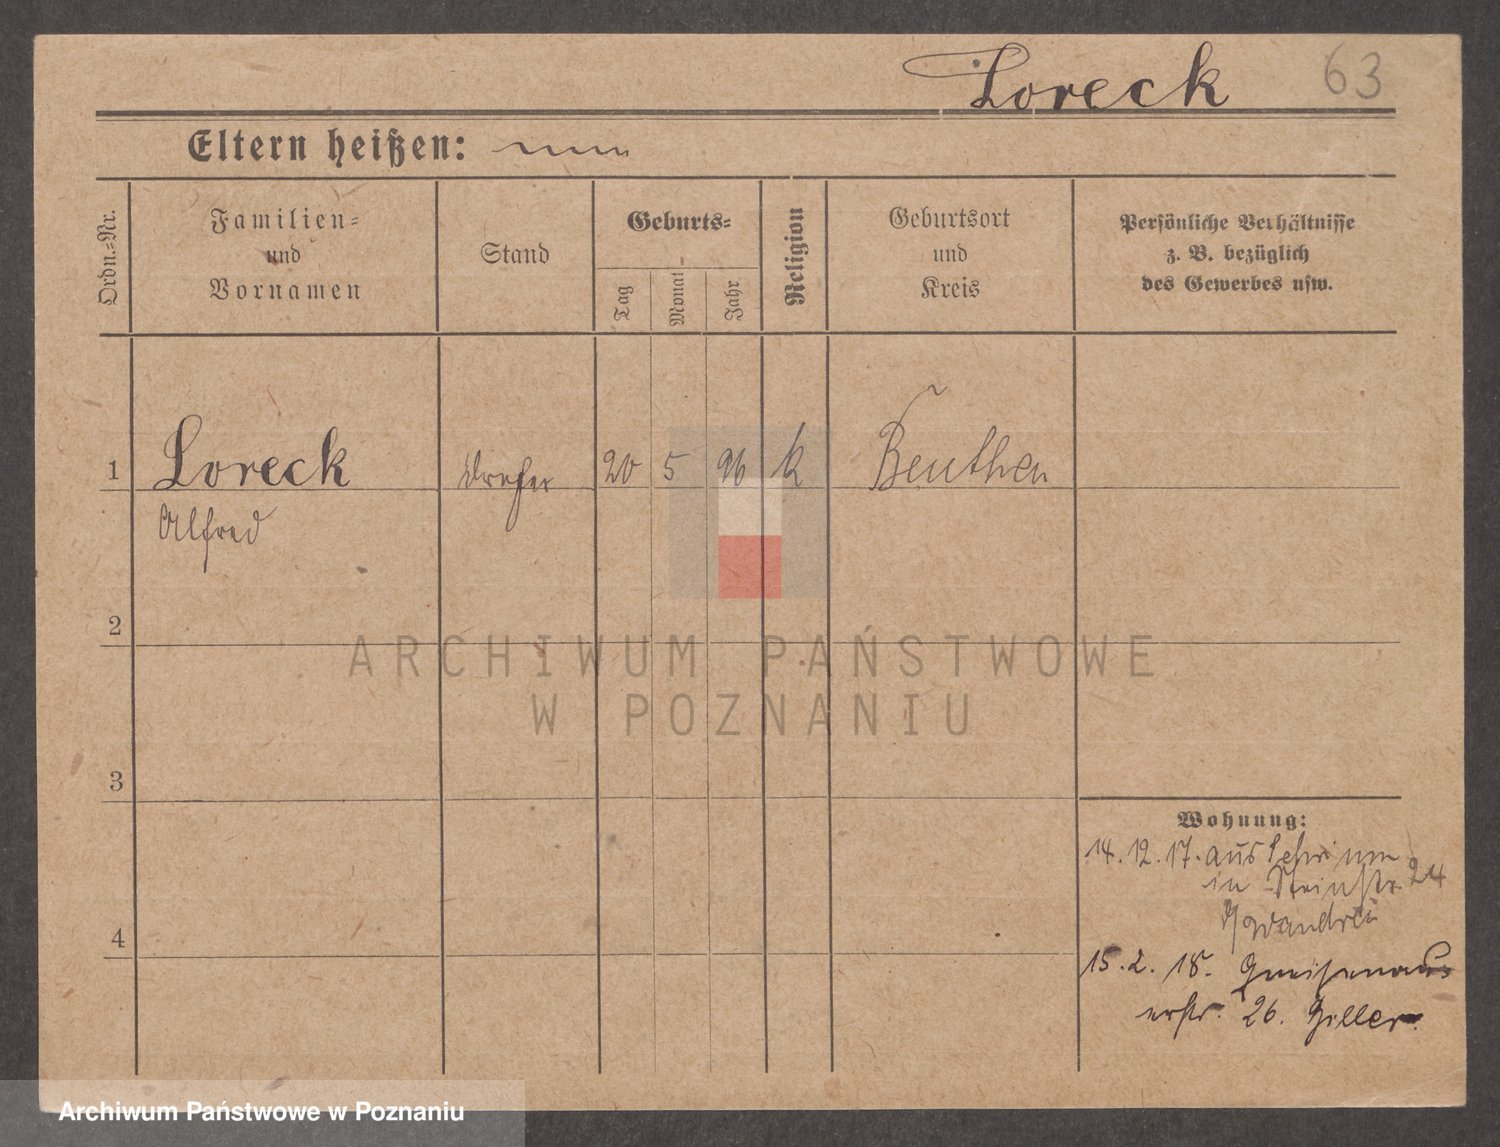 Loreck 63
Eltern heißen:
Ordn.-Nr.
Familien-
und
Vornamen
Stand
Geburts-
Tag
Monat
Jahr
Religion
Geburtsort
und
Kreis
Persönliche Verhältnisse
z. B. bezüglich
des Gewerbes usw.
1 Loreck Dreher 20 5 96 k Beuthen
Alfred
2
3
4
Wohnung:
14. 12. 17. aus
in Steinstr. 24
15. 2. 18. Gneisenau
26. Giller.
ARCHIWUM PAŃSTWOWE
W POZNANIU
Archiwum Państwowe w Poznaniu